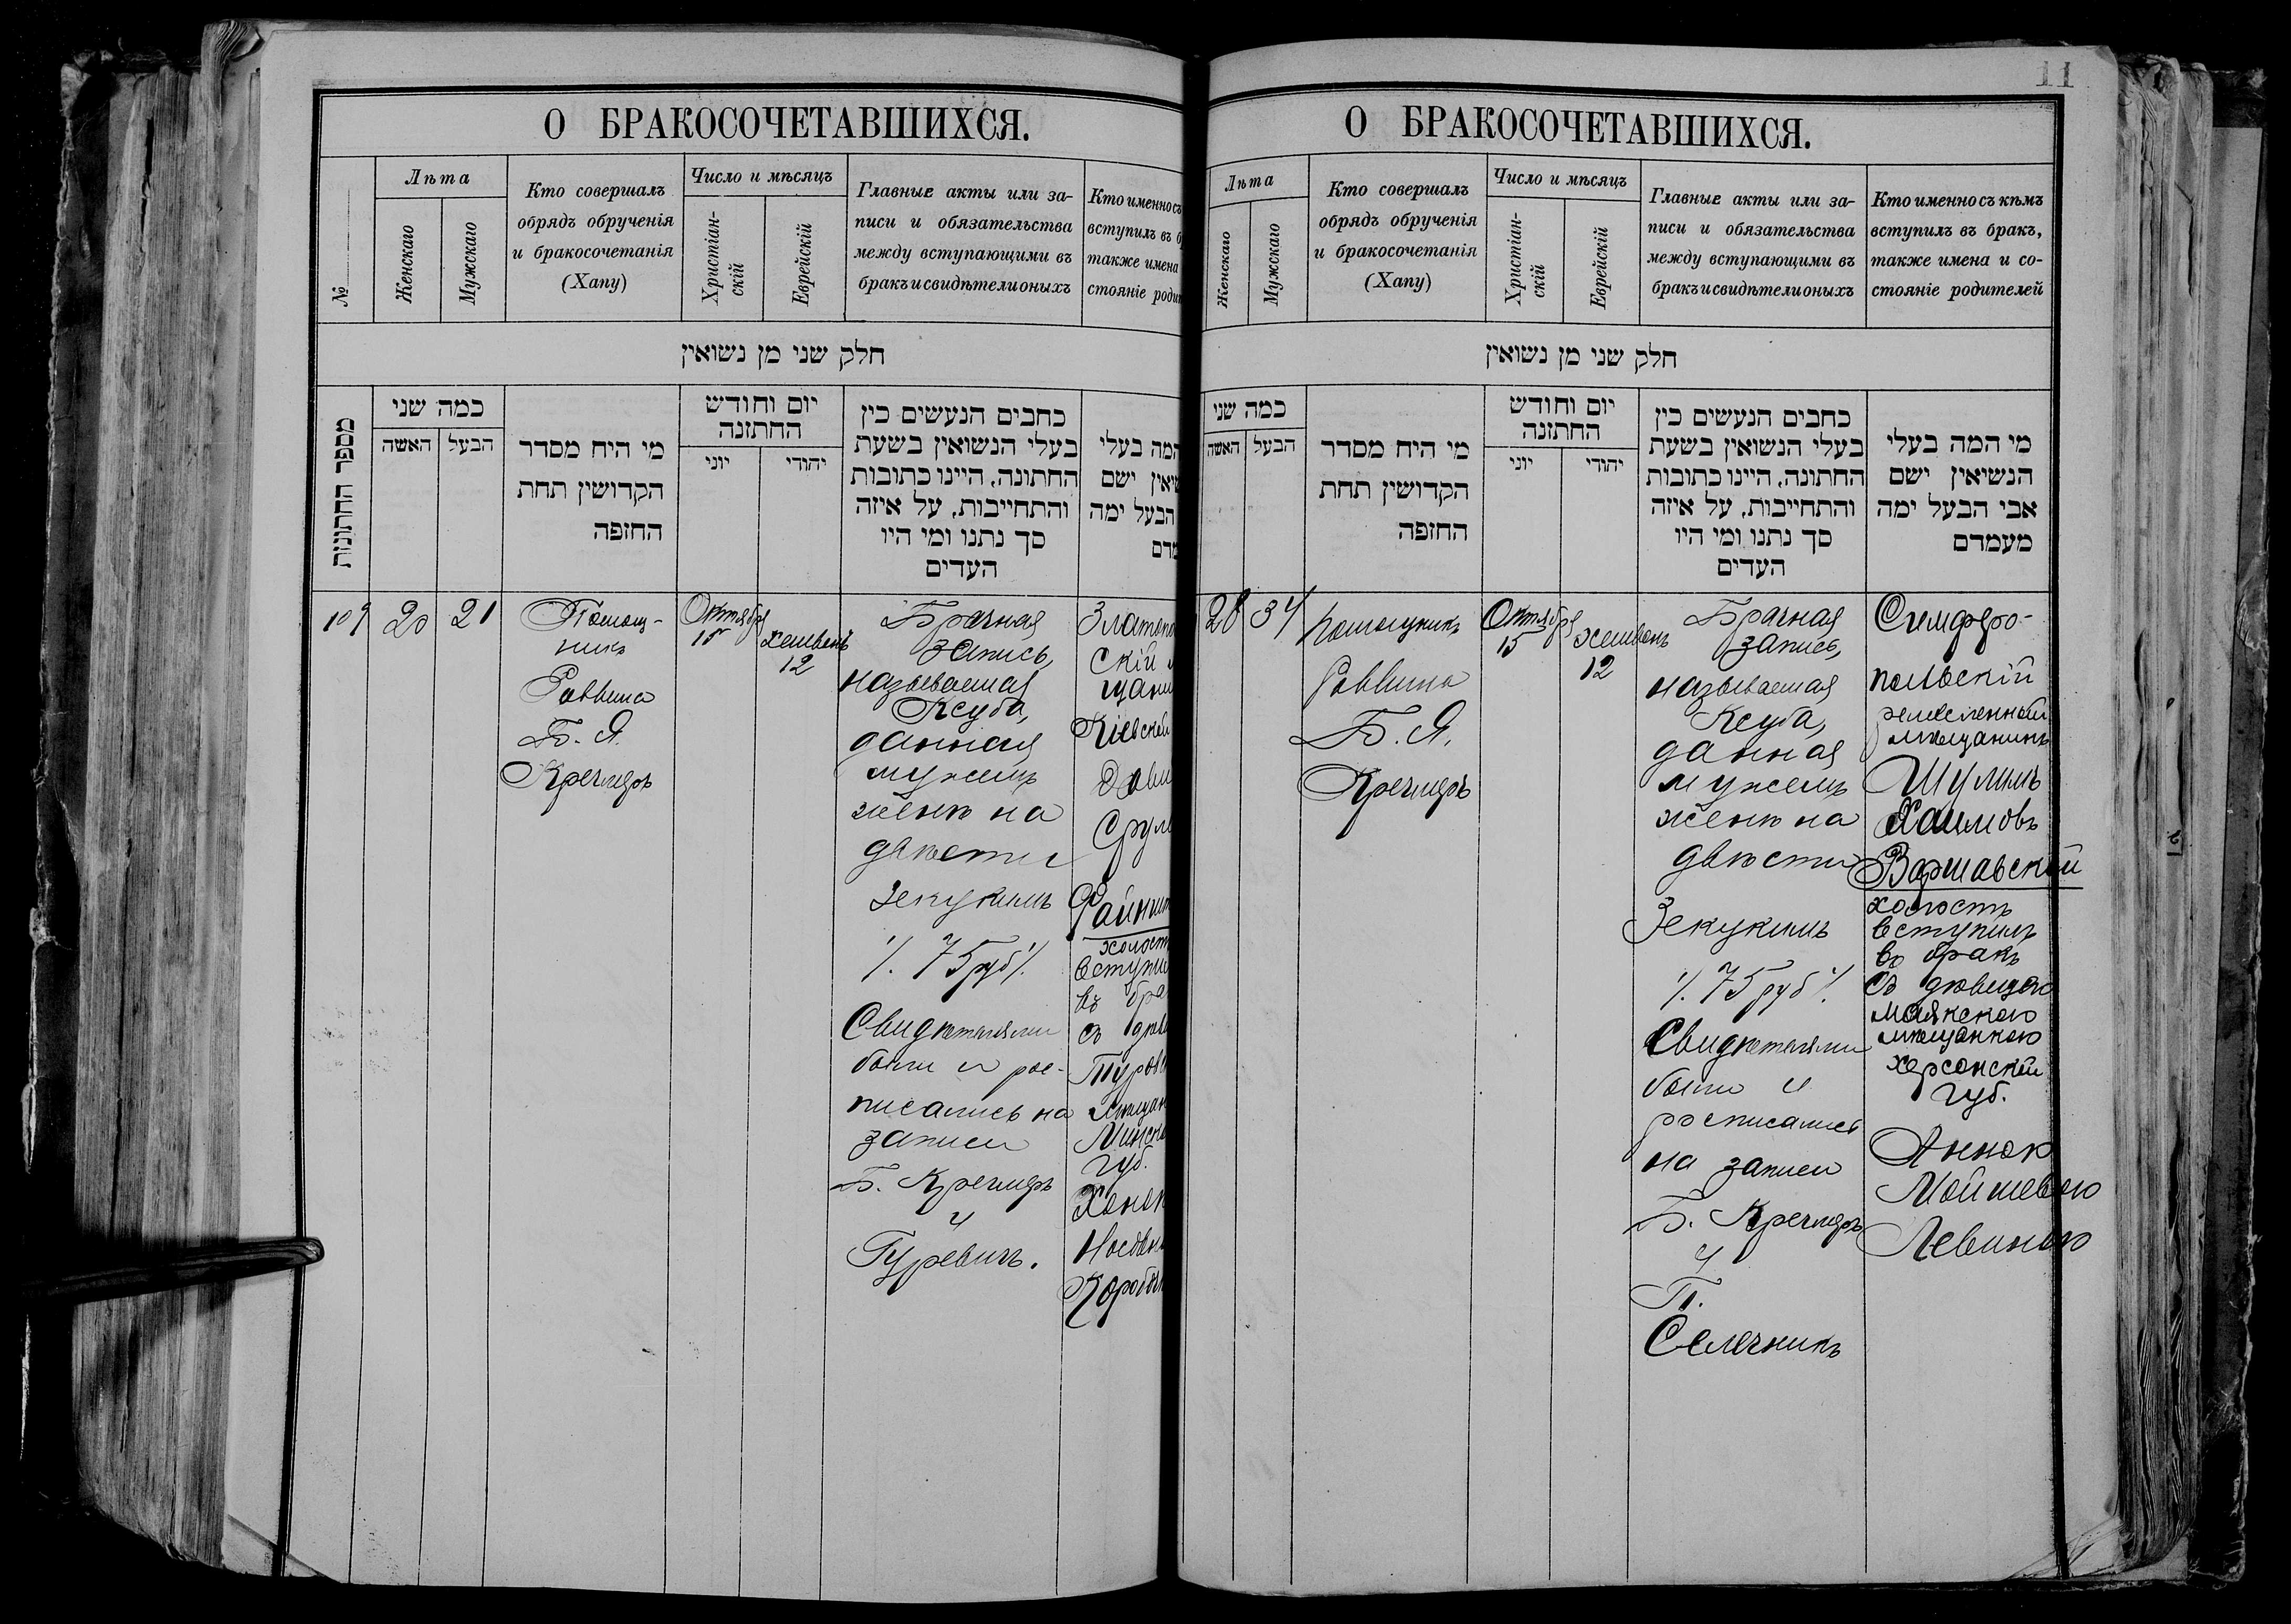 О БРАКОСОЧЕТАВШИХСЯ.
№
Лѣта
Женскаго
Мужскаго
Кто совершалъ
обрядъ обрученія
и бракосочетанія
(Хапу)
Число и мѣсяцъ
Христіан-
скій
Еврейскій
Главные акты или за-
писи и обязательства
между вступающими въ
бракъ и свидѣтели оныхъ
Кто именно съ
вступилъ въ б
также имена
стояніе роди
חלק שני מן נשואין
מספר החתונות
כמה שני
האשה
הבעל
מי היח מסדר
הקדושין תחת
החופה
יום וחודש
החתונה
יוני
יהודי
כחבים הנעשים כין
בעלי הנשואין בשעת
החתונה, היינו כתובות
והתחייבות, על איזה
סך נתנו ומי היו
העדים
המה בעלי
שיאין ישם
הבעל ימה
מדם
109
20
21
Помощ-
никъ
Раввина
Б. Я.
Кречмеръ
Октября
15
Хешвенъ
12
Брачная
запись,
называемая
Ксуба,
данная
мужемъ
женѣ на
двѣсти
Зекукимъ
./. 75 руб ./.
Свидѣтелями
были и рос-
писались на
записи
Б. Кречмеръ
и
Гуревичъ.
Златопо
скій м
щани
Кіевской
Дави
Срул
Файнши
холост
вступи
въ бра
съ дѣв
Туровс
мѣщан
Минско
губ.
Ханок
Носовн
Коробоч
11
О БРАКОСОЧЕТАВШИХСЯ.
Лѣта
Женскаго
Мужскаго
Кто совершалъ
обрядъ обрученія
и бракосочетанія
(Хапу)
Число и мѣсяцъ
Христіан-
скій
Еврейскій
Главные акты или за-
писи и обязательства
между вступающими въ
бракъ и свидѣтели оныхъ
Кто именно съ кѣмъ
вступилъ въ бракъ,
также имена и со-
стояніе родителей
חלק שני מן נשואין
כמה שני
האשה
הבעל
מי היח מסדר
הקדושין תחת
החופה
יום וחודש
החתונה
יוני
יהודי
כחבים הנעשים כין
בעלי הנשואין בשעת
החתונה, היינו כתובות
והתחייבות, על איזה
סך נתנו ומי היו
העדים
מי המה בעלי
הנשיאין ישם
אבי הבעל ימה
מעמדם
28
34
Помощникъ
Раввина
Б. Я.
Кречмеръ
Октября
15
Хешвенъ
12
Брачная
запись,
называемая
Ксуба,
данная
мужемъ
женѣ на
двѣсти
Зекукимъ
./. 75 руб ./.
Свидѣтелями
были и
росписались
на записи
Б. Кречмеръ
и
П.
Селечникъ
Симферо-
польскій
ремесленный
мѣщанинъ
Шулимъ
Хаимовъ
Варшавскій
холостъ
вступилъ
въ бракъ
съ дѣвицею
маякскою
мѣщанкою
Херсонской
губ.
Анною
Мойшевою
Левиною